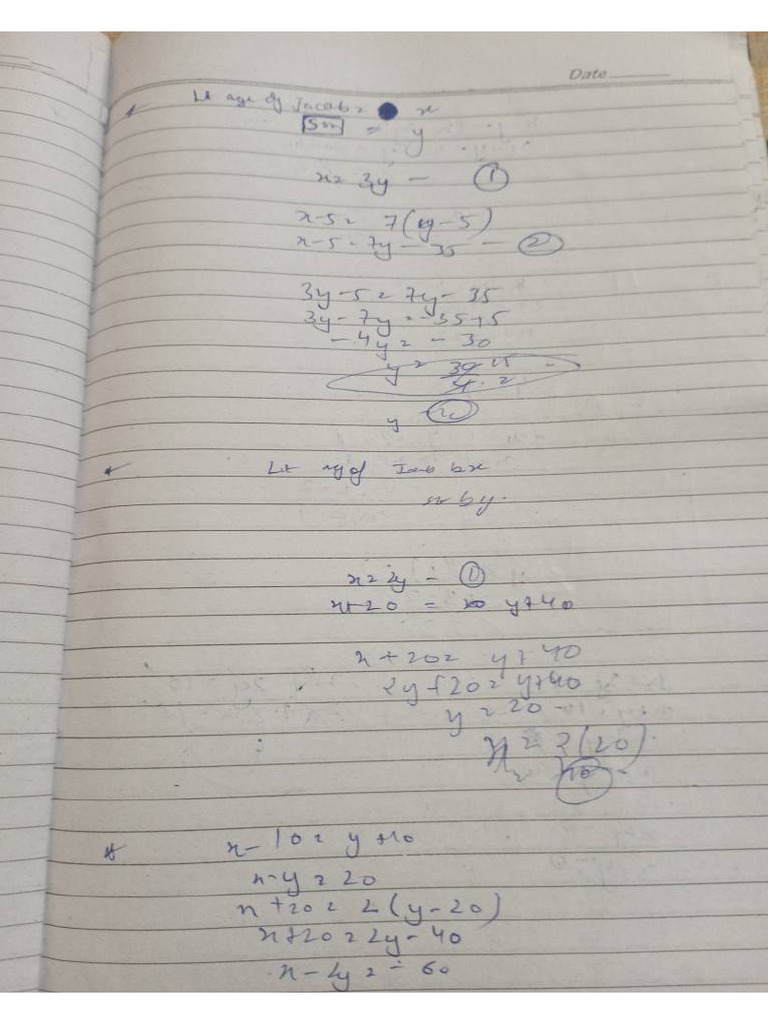 Date
Let age of Jacob = x
Son = y
x = 3y — ①
x-5 = 7(y-5)
x-5 = 7y - 35 — ②
3y-5 = 7y - 35
3y-7y = -35+5
-4y = -30
y = 30 15
4 2
y
Let age of be x
be y.
x = 2y — ①
x+20 = y+40
x + 20 = y + 40
2y + 20 = y+40
y = 20
x = 2(20)
= 40
x - 10 = y + 10
x - y = 20
x + 20 = 2(y-20)
x + 20 = 2y - 40
x - 2y = - 60